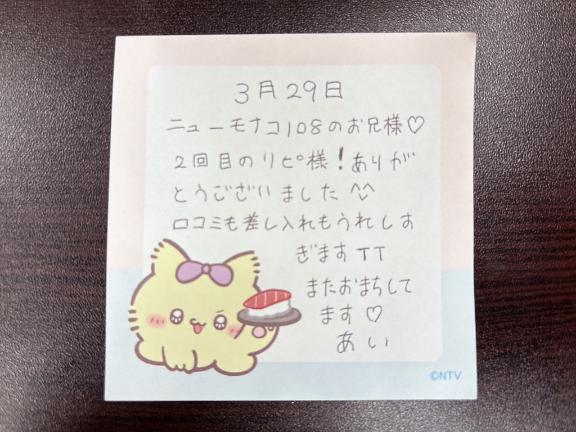 3月29日
ニューモナコ108のお兄様♡
2回目のリピ様！ありが
とうございました^^
口コミも差し入れもうれしす
ぎますTT
またおまちして
ます♡
あい
©NTV